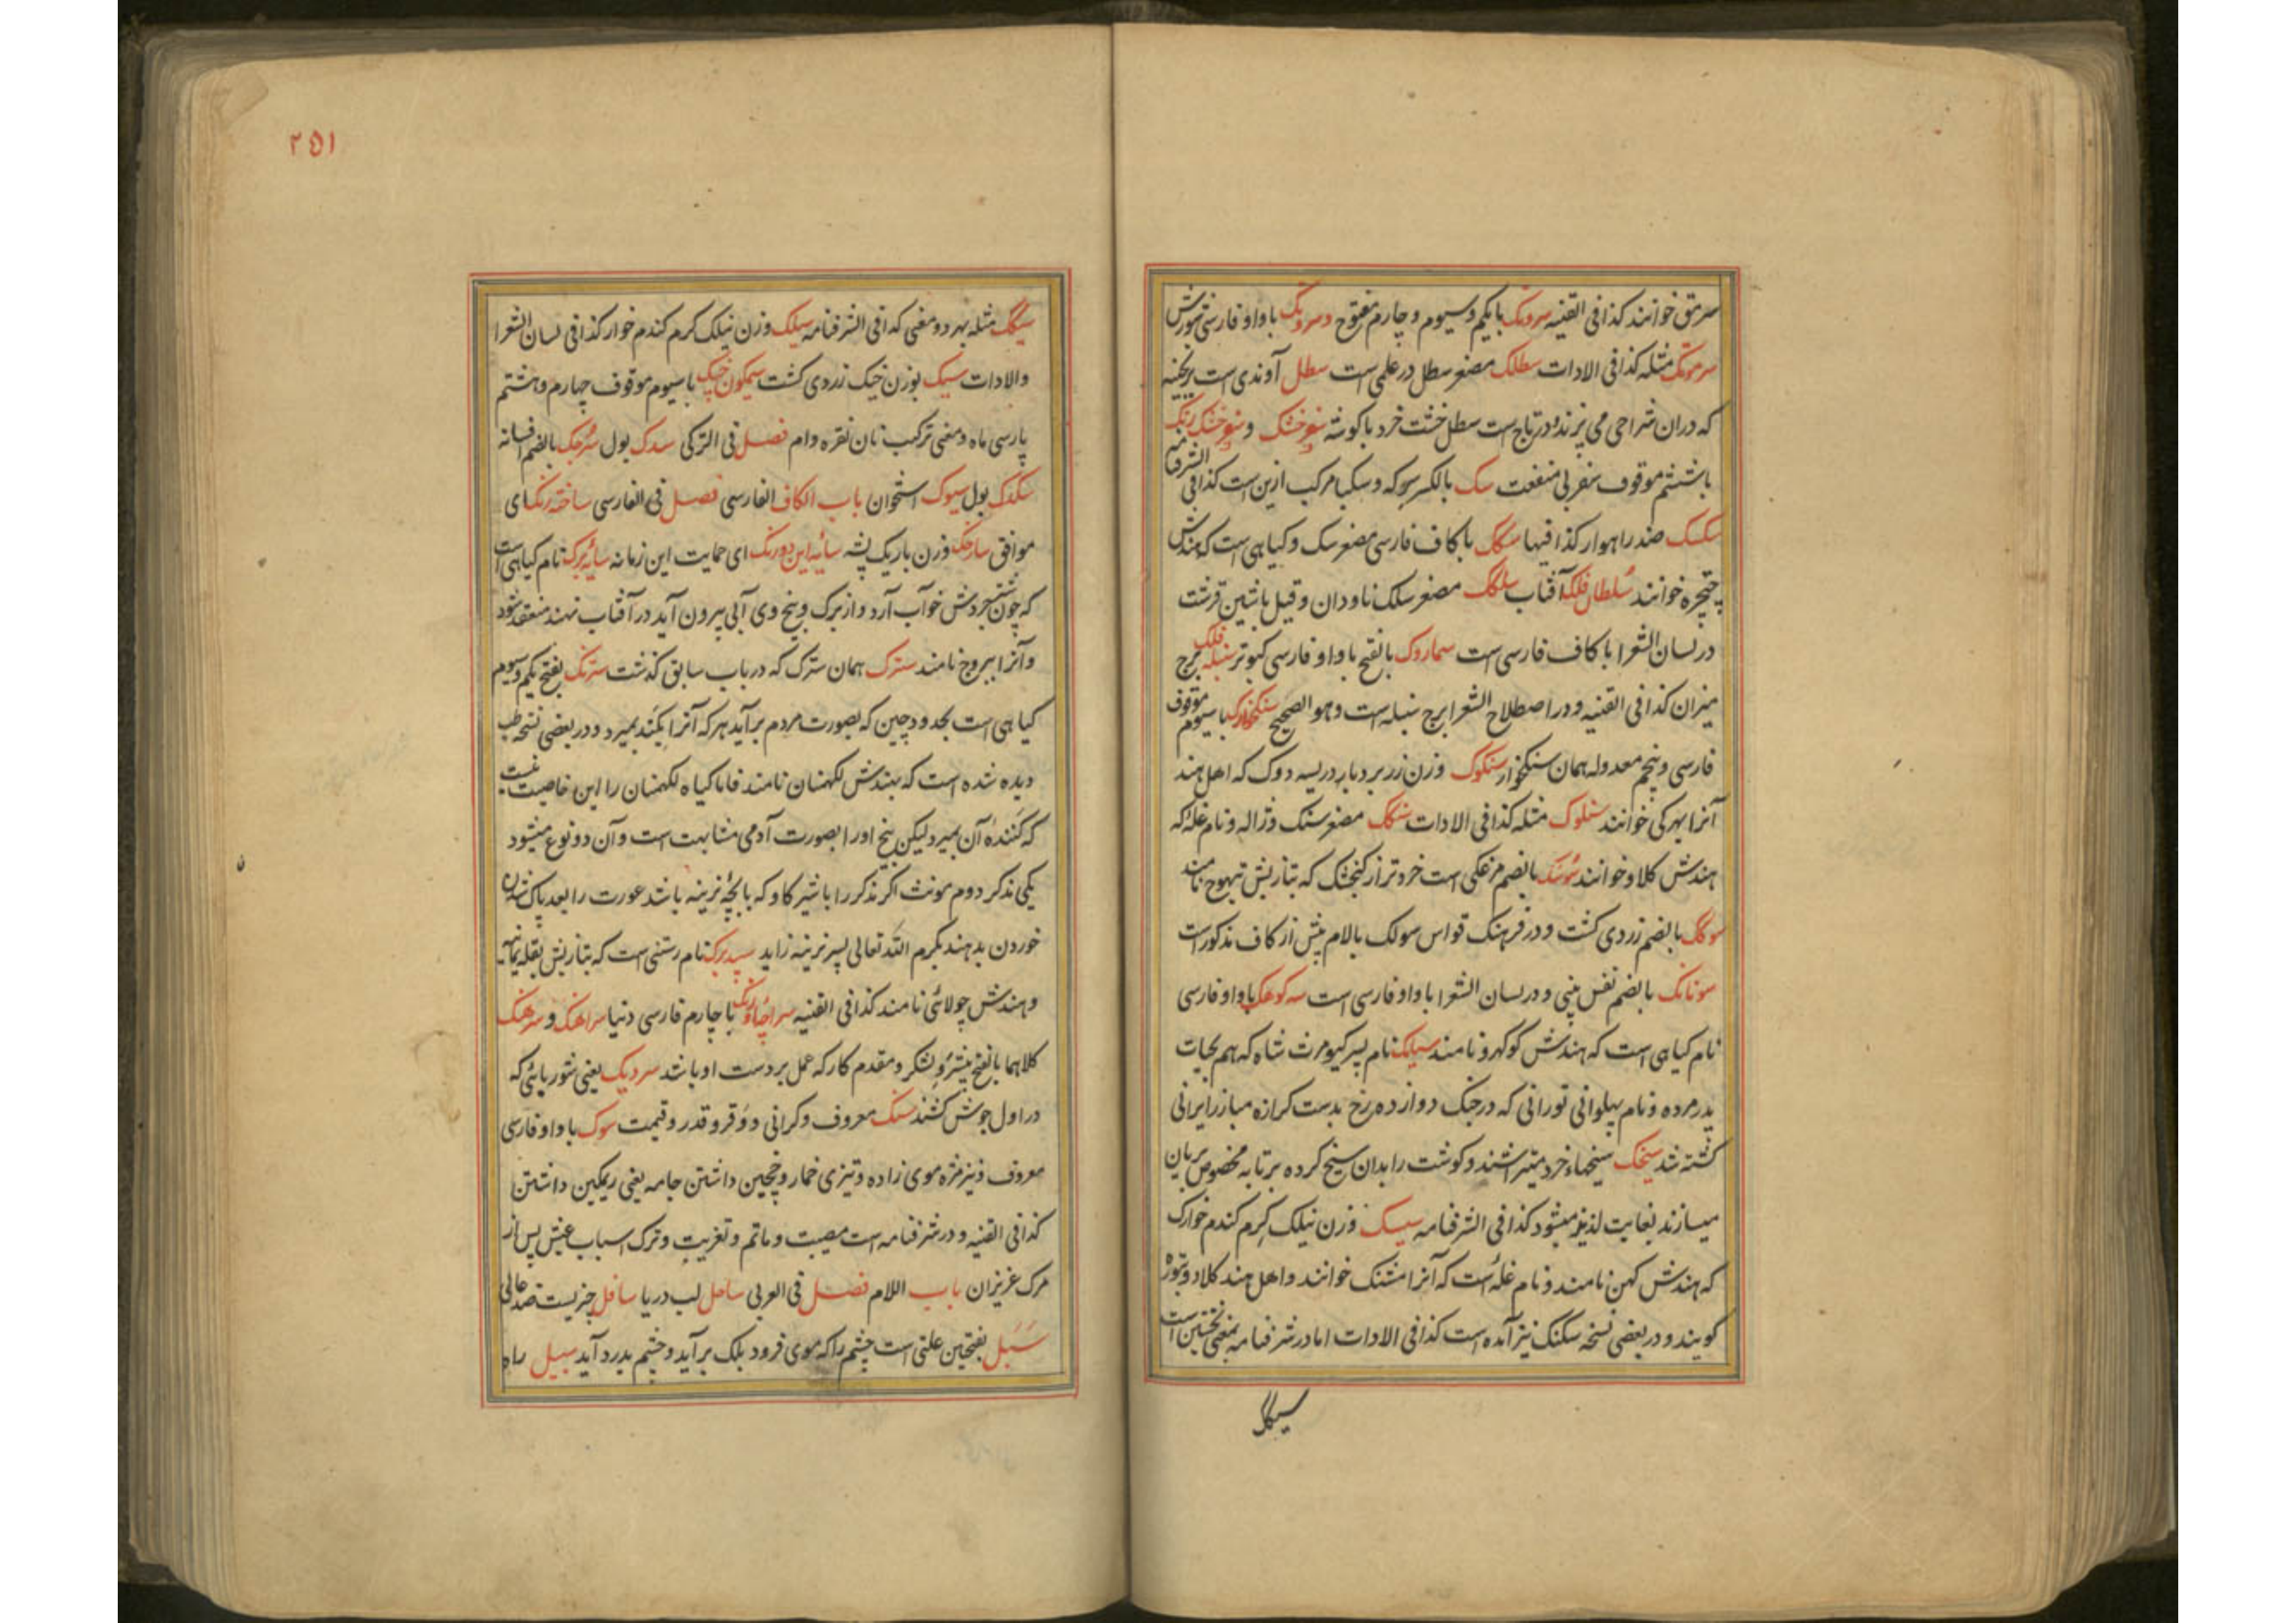 سرمق خوانند کذا فی القنیه سرونک با یکم و سیوم و چارم مفتوح و سرونک با واو فارسی
سرمونک مثله کذا فی الادات سطلک مصغر سطل در علمی است سطل آوندی است
که دران شراحی می پزند و در تاج است سطل خشت خرد با کوشه
باششتم موقوف سفر بی منفعت سک بالکسر سرکه و سکبا مرکب ازین است کذا فی الشرفنامه
سکسک ضد راهوار کذا فیها سکک با کاف فارسی مصغر سک و کیاهی است که هندش
چتچره خوانند سلطان فلک آفتاب سلک مصغر سلک ناودان و قیل باشین قرشت
در لسان الشعرا با کاف فارسی است سماروک بالفتح با واو فارسی کبوتر سنبله فلک برج
میزان کذا فی القنیه و در اصطلاح الشعرا برج سنبله است و هو الصحیح سنکخوارک با سیوم موقوف
فارسی و پنجم معدوله همان سنکخوار سنکوک وزن زر بر دباد ریسه دوک که اهل هند
آنرا پهرکی خوانند سنلوک مثله کذا فی الادات سنکک مصغر سنک و ژاله و نام غله که
هندش کلاو خوانند بالضم مرغکی است خردتر از کنجشک که بتازیش تنهوج نامند
سوکک بالضم زردی کشت و در فرهنک قواس سولک بالام پیش از کاف مذکور است
سونانک بالضم نفس بینی و در لسان الشعرا با واو فارسی است سه کوهک با واو فارسی
نام کیاهی است که هندش کوکهرو نامند سیامک نام پسر کیومرث شاه که هم بحیات
پدر مرده و نام پهلوانی تورانی که در جنک دوازده رخ بدست کرازه مبارز ایرانی
کشته شد سیخک سیخهاء خرد میتراشند و کوشت را بدان سیخ کرده بر تابه مخصوص بریان
میسازند بغایت لذیذ میشود کذا فی الشرفنامه سیسک وزن نیلک کرم کندم خوارک
که هندش کهن نامند و نام غله است که آنرا مشنک خوانند و اهل هند کلاو و بتوره
کویند و در بعضی نسخه سکنک نیز آمده است کذا فی الادات اما در شرفنامه بمعنی نخستین است
سیکک
۲۵۱
سیکک مثله بهر دو معنی کذا فی الشرفنامه سیلک وزن نیلک کرم کندم خوار کذا فی لسان الشعرا
والادات سیک بوزن خیک زردی کشت سیمکون خیک با سیوم موقوف چهارم و هشتم
پارسی ماه و معنی ترکیب نان نقره وام فصل فی الترکی سدک بول سرچک بالضم افسانه
سکدک بول سیوک استخوان باب الکاف الفارسی فصل فی الفارسی ساخته رنک ای
موافق سارخک وزن باریک پشه سایه این دو رنک ای حمایت این زمانه سایه برک نام کیاهی است
که چون شتر بخوردش خواب آرد و از برک و بیخ وی آبی بیرون آید در آفتاب نهند منعقد شود
و آنرا یبروج نامند سترک همان سترک که در باب سابق کذشت سترنک بفتح یکم و سیوم
کیاهی است بحدود چین که بصورت مردم برآید هرکه آنرا بکند بمیرد و در بعضی نسخه طب
دیده شده است که بهندش لکهمنان نامند فاما کیاه لکهمنان را این خاصیت نیست
که کننده آن بمیرد لیکن بیخ او را بصورت آدمی مشابهت است و آن دو نوع میشود
یکی مذکر دوم مونث اکر مذکر را با شیر کاو که با بچه نرینه باشد عورت را بعد پاک شدن
خوردن بدهند بکرم الله تعالی پسر نرینه زاید سپید برک نام رستنی است که بتازیش بقله یمانیه
و هندش چولائی نامند کذا فی القنیه سراچه آونک با چارم فارسی دنیا سراهنک و سرهنک
کلاهما بالفتح پیشرو لشکر و مقدم کار که عمل بر دست او باشد سردیک یعنی شوربائی که
در اول جوش کشند سنک معروف و کرانی و وقر و قدر و قیمت سوک با واو فارسی
معروف و نیز مژه موی زاده و تیزی خمار و چین داشتن جامه یعنی ریمکین داشتن
کذا فی القنیه و در شرفنامه است مصیبت و ماتم و تعزیت و ترک اسباب عیش پس از
مرک عزیزان باب اللام فصل فی العربی ساحل لب دریا سافل چیز پست ضد عالی
سبل بفتحین علتی است چشم را که موی فرود پلک برآید و چشم بدرد آید سبیل راه